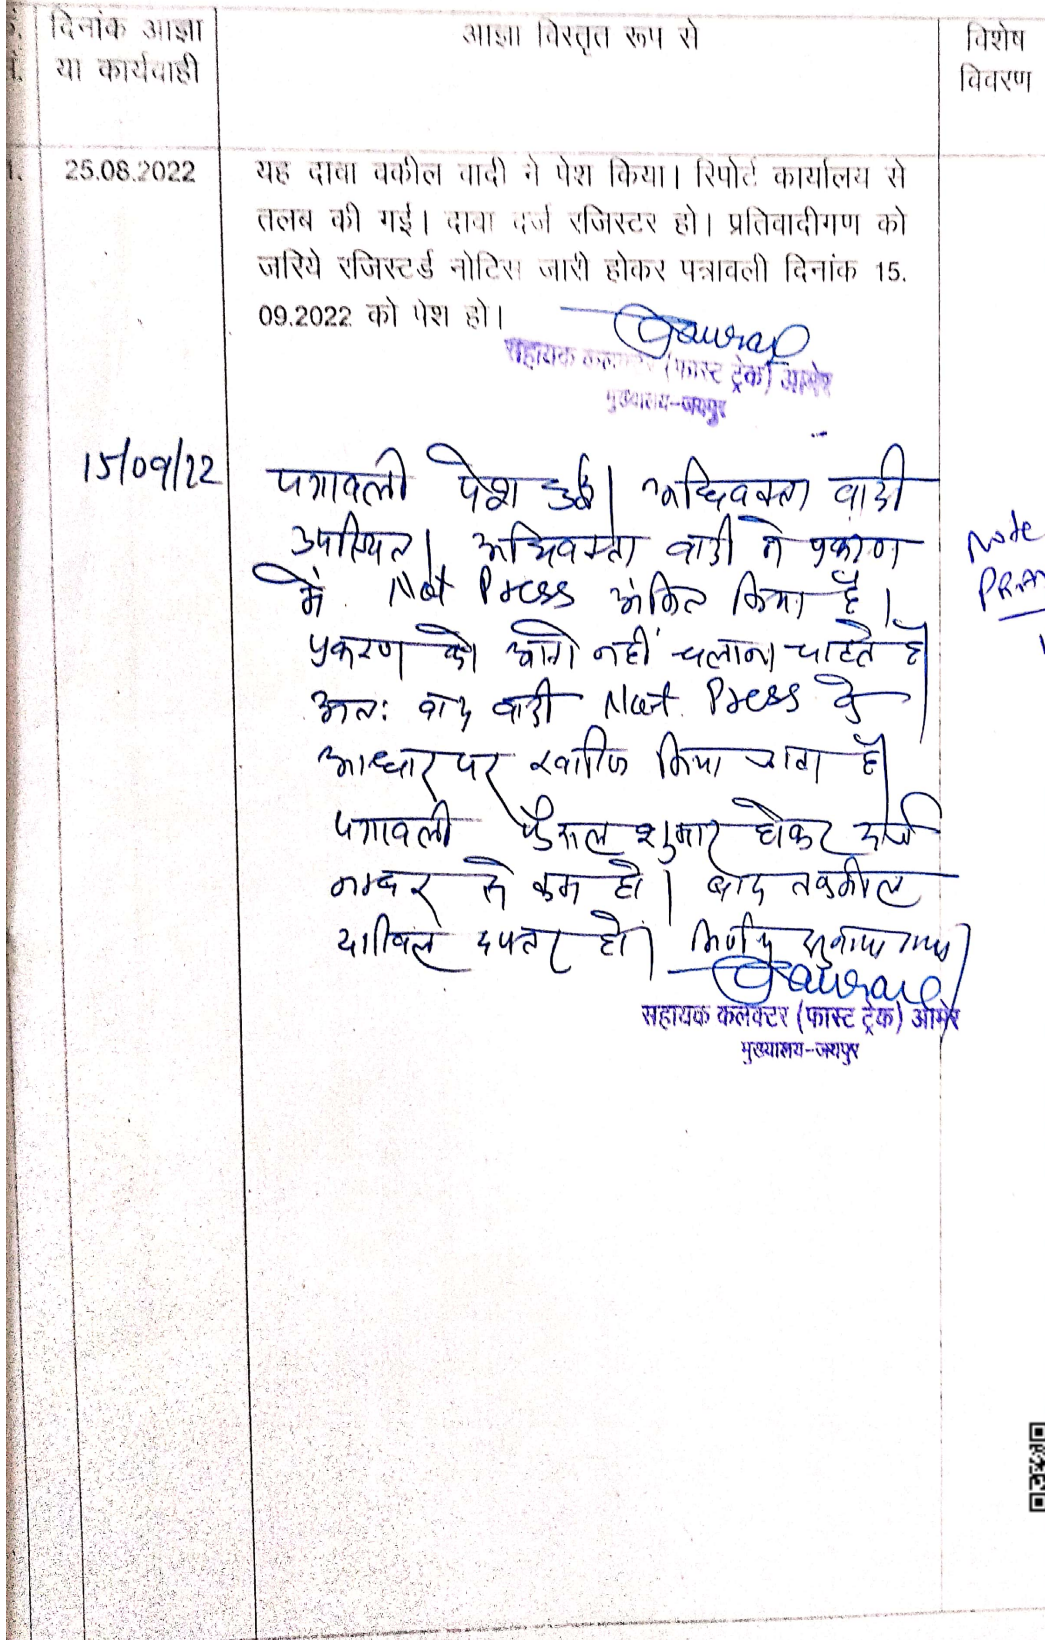 दिनांक आज्ञा
या कार्यवाही
आज्ञा विस्तृत रूप से
विशेष
विवरण
1. 25.08.2022
यह दावा वकील वादी ने पेश किया। रिपोर्ट कार्यालय से
तलब की गई। दावा दर्ज रजिस्टर हो। प्रतिवादीगण को
जरिये रजिस्टर्ड नोटिस जारी होकर पत्रावली दिनांक 15.
09.2022 को पेश हो।
सहायक कलक्टर (फास्ट ट्रेक) आमेर
मुख्यालय-जयपुर
15/09/22
पत्रावली पेश हुई। अधिवक्ता वादी
उपस्थित। अधिवक्ता वादी ने प्रकरण
में Not Press अंकित किया है।
प्रकरण को आगे नहीं चलाना चाहते है
अतः वाद वादी Not Press के
आधार पर खारिज किया जाता है।
पत्रावली फैसल शुमार होकर दर्ज
नम्बर से कम हो। बाद तकमील
दाखिल दफ्तर हो। निर्णय सुनाया गया
सहायक कलक्टर (फास्ट ट्रेक) आमेर
मुख्यालय-जयपुर